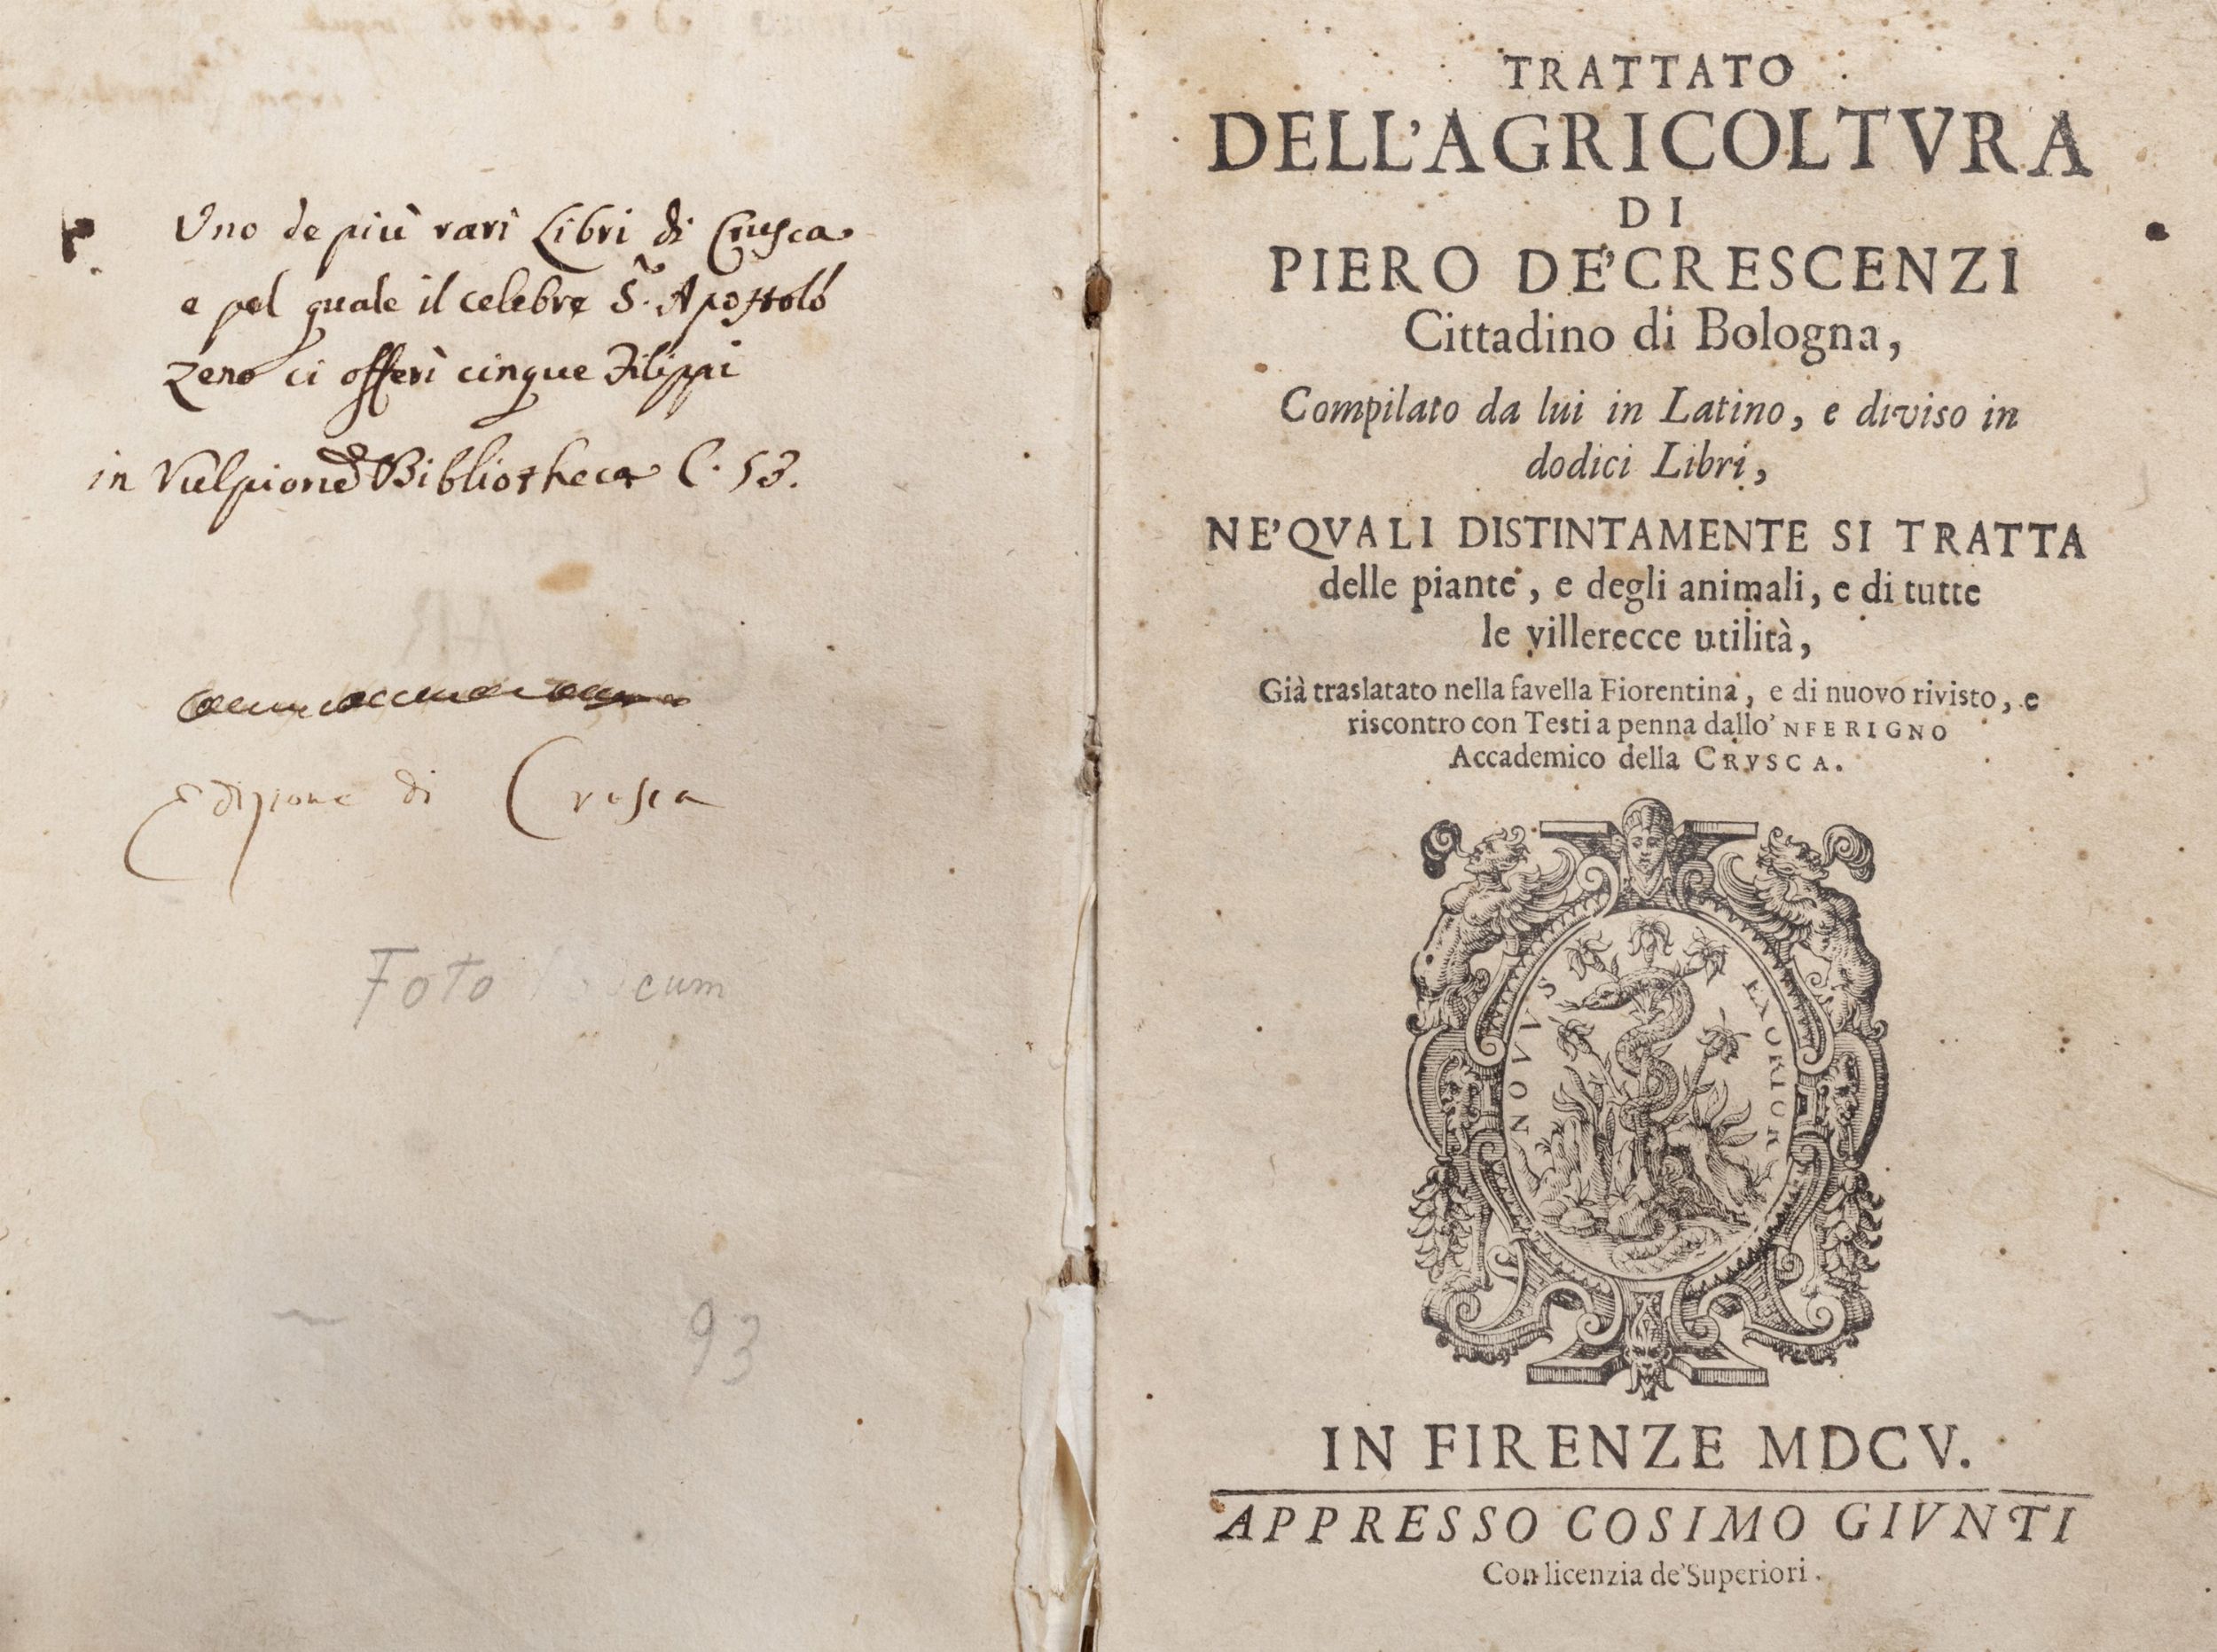 Uno de più rari Libri di Crusca
e pel quale il celebre S. Apostolo
Zeno ci offerì cinque Filippi
in Vulpione Bibliotheca C. 53.
Edizione di Crusca
Foto cum
93
TRATTATO
DELL'AGRICOLTVRA
DI
PIERO DE'CRESCENZI
Cittadino di Bologna,
Compilato da lui in Latino, e diviso in
dodici Libri,
NE'QVALI DISTINTAMENTE SI TRATTA
delle piante, e degli animali, e di tutte
le villerecce utilità,
Già traslatato nella favella Fiorentina, e di nuovo rivisto, e
riscontro con Testi a penna dallo'NFERIGNO
Accademico della CRVSCA.
NOVVS EXORIOR
IN FIRENZE MDCV.
APPRESSO COSIMO GIVNTI
Con licenzia de'Superiori.